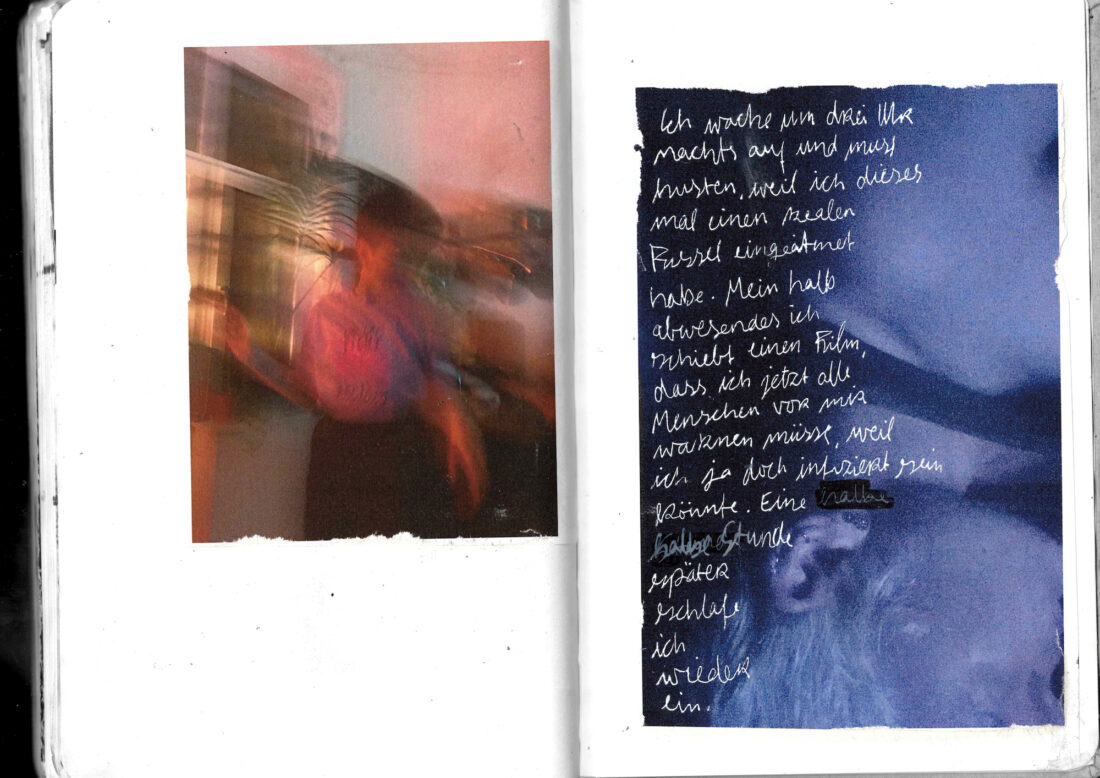 Ich wache um drei Uhr
nachts auf und muss
husten, weil ich dieses
mal einen realen
Fussel eingeatmet
habe. Mein halb
abwesendes ich
schiebt einen Film,
dass ich jetzt alle
Menschen vor mir
warnen müsse, weil
ich ja doch infiziert sein
könnte. Eine
halbe Stunde
später
schlafe
ich
wieder
ein.